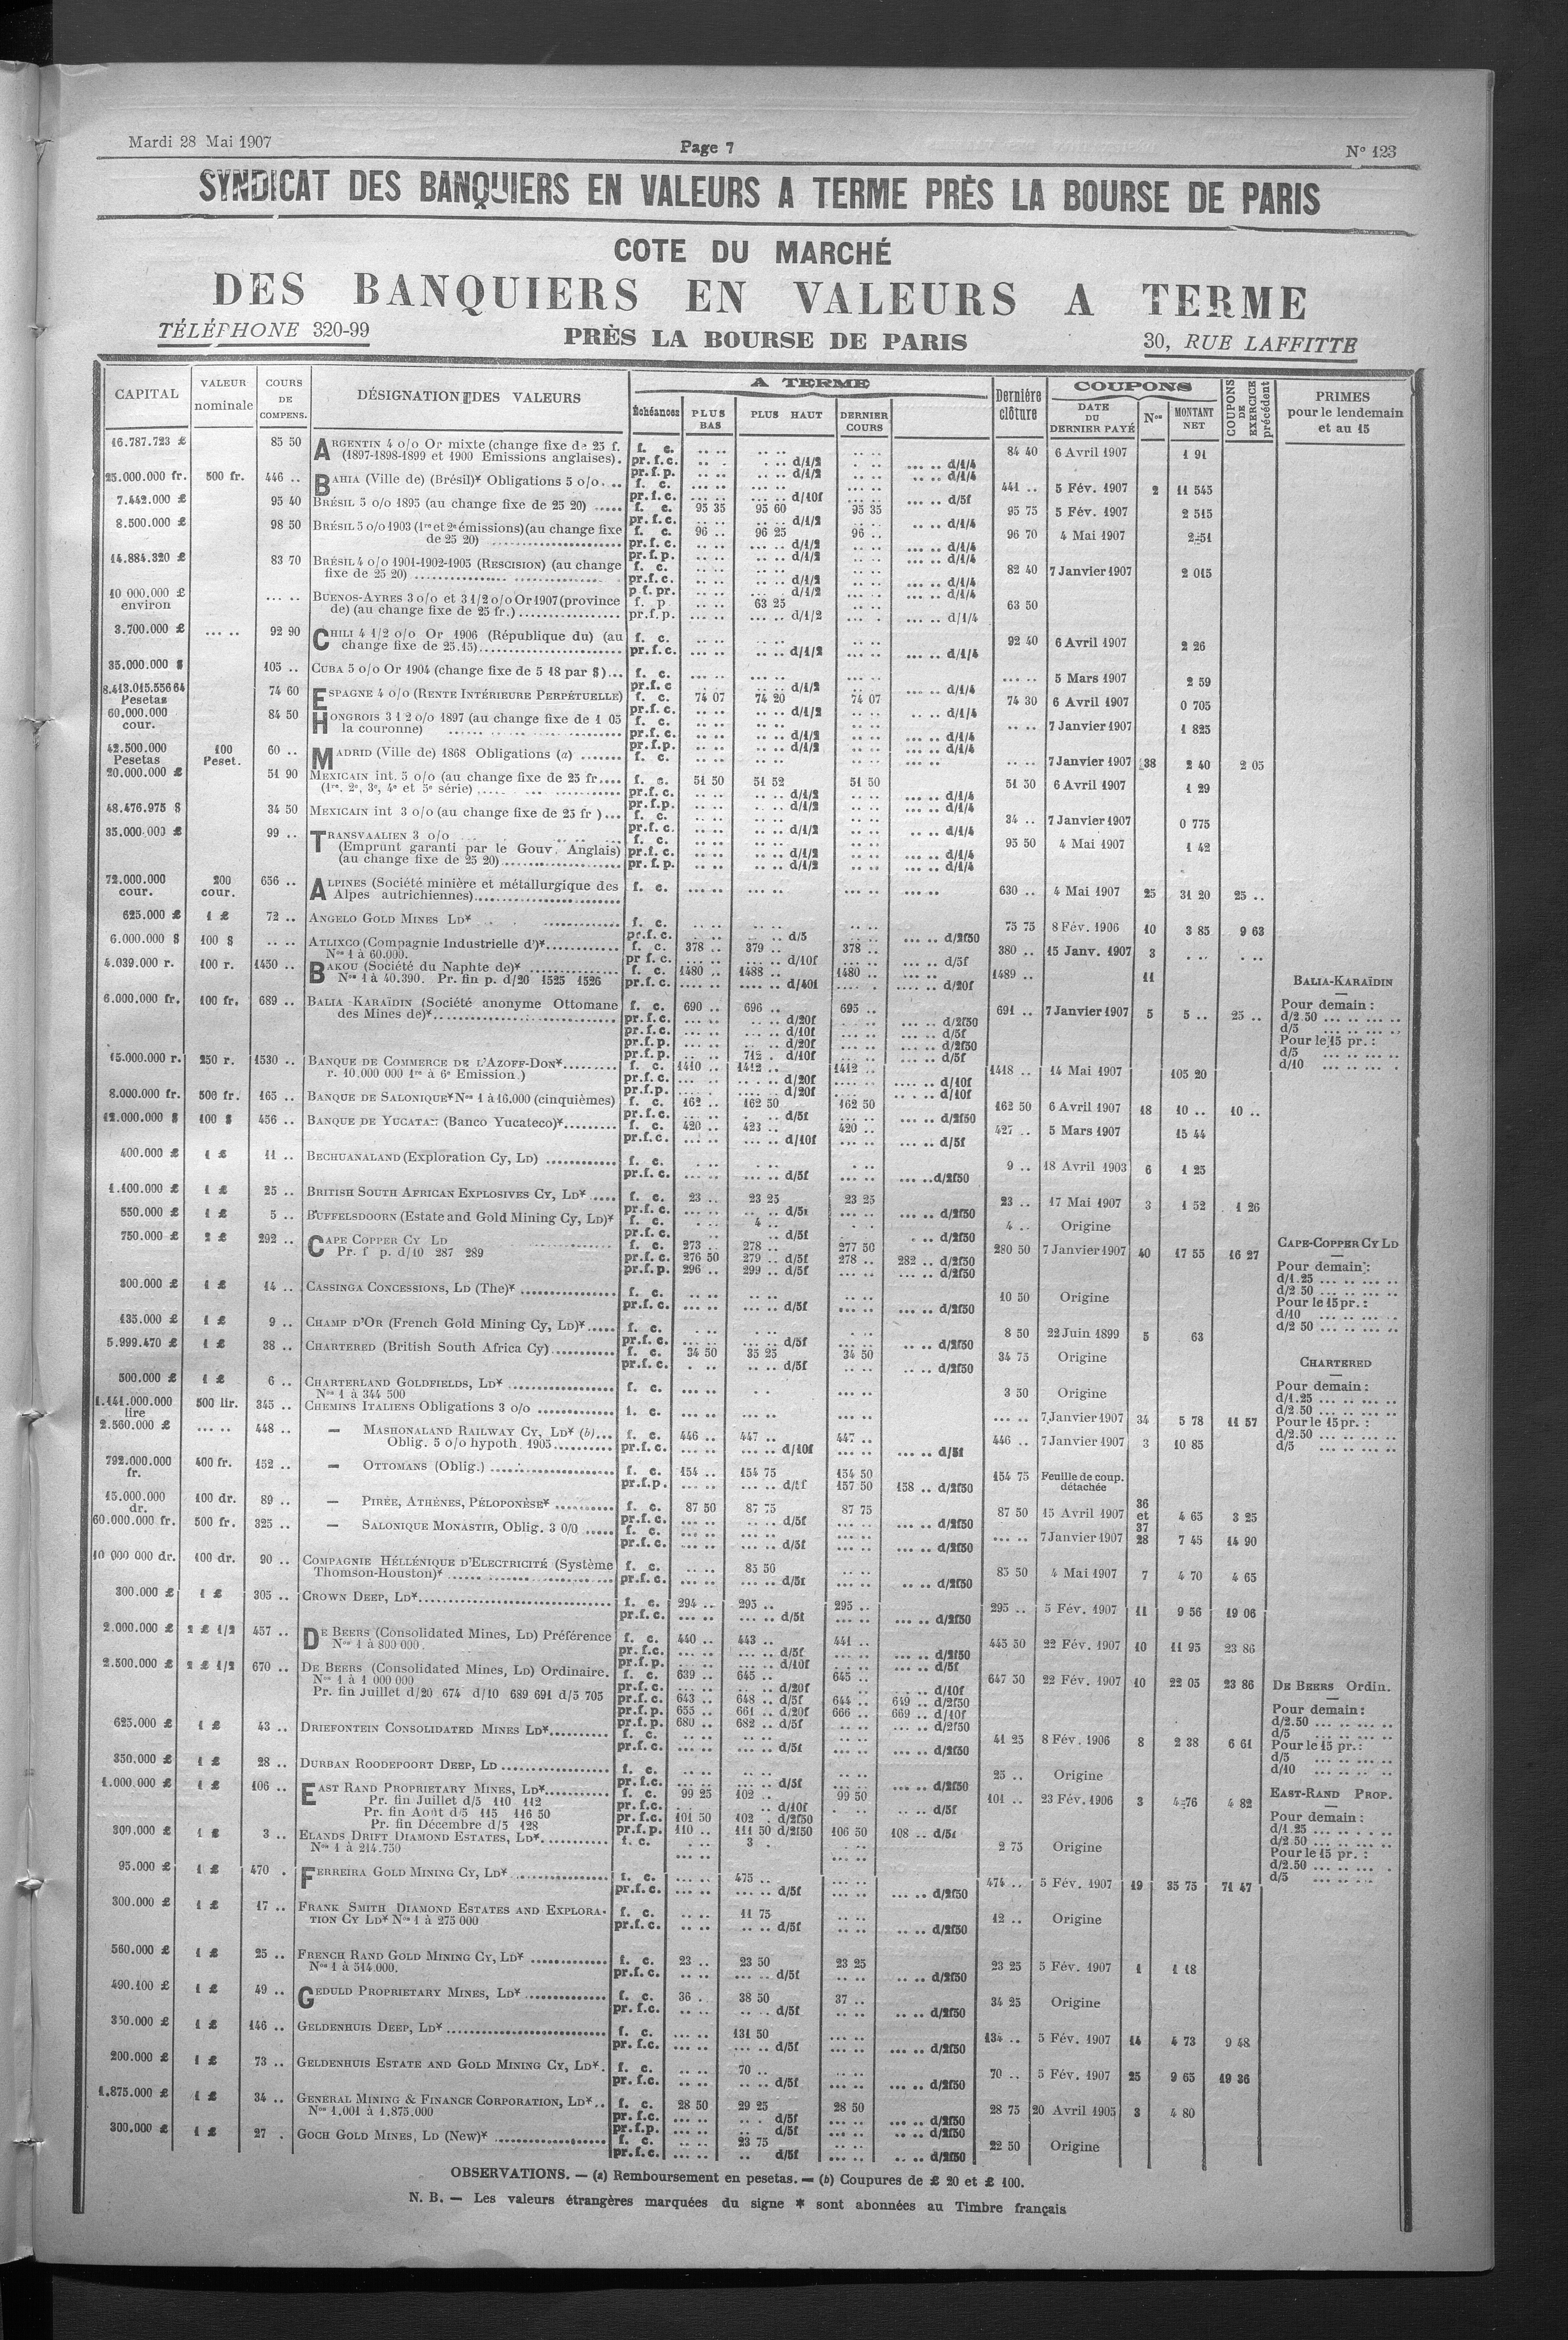 Mardi 28 Mai 1907 Page 7 N° 123
SYNDICAT DES BANQUIERS EN VALEURS A TERME PRÈS LA BOURSE DE PARIS
COTE DU MARCHÉ
DES BANQUIERS EN VALEURS A TERME
TÉLÉPHONE 320-99 PRÈS LA BOURSE DE PARIS 30, RUE LAFFITTE
CAPITAL VALEUR nominale COURS DE COMPENS. DÉSIGNATION DES VALEURS A TERME Échéances PLUS BAS PLUS HAUT DERNIER COURS Dernière clôture COUPONS DATE DU DERNIER PAYÉ Nos MONTANT NET COUPONS DE EXERCICE précédent PRIMES pour le lendemain et au 15
16.787.723 £ 85 50 ARGENTIN 4 o/o Or mixte (change fixe de 25 f. f. c. 84 40 6 Avril 1907 1 91
(1897-1898-1899 et 1900 Emissions anglaises). pr.f.c. d/1/2 d/1/4
25.000.000 fr. 500 fr. 446 .. BAHIA (Ville de) (Brésil)* Obligations 5 o/o... f. c. 441 .. 5 Fév. 1907 2 11 545
7.442.000 £ 95 40 BRÉSIL 5 o/o 1895 (au change fixe de 25 20) ..... f. c. 95 35 95 60 95 35 95 75 5 Fév. 1907 2 515
8.500.000 £ 98 50 BRÉSIL 5 o/o 1903 (1re et 2e émissions)(au change fixe f. c. 96 .. 96 25 96 .. 96 70 4 Mai 1907 2 51
de 25 20) pr.f.c. d/1/2 d/1/4
14.884.320 £ 83 70 BRÉSIL 4 o/o 1901-1902-1905 (RESCISION) (au change f. c. 82 40 7 Janvier 1907 2 015
fixe de 25 20) pr.f.c. d/1/2 d/1/4
10 000.000 £ environ BUENOS-AYRES 3 o/o et 3 1/2 o/o Or 1907 (province f. p 63 25 63 50
de) (au change fixe de 25 fr.) pr.f.p. d/1/2 d/1/4
3.700.000 £ 92 90 CHILI 4 1/2 o/o Or 1906 (République du) (au f. c. 92 40 6 Avril 1907 2 26
change fixe de 25.15) pr.f.c. d/1/2 d/1/4
35.000.000 $ 105 .. CUBA 5 o/o Or 1904 (change fixe de 5 18 par $)... f. c. 5 Mars 1907 2 59
8.413.015.556 64 Pesetas 74 60 ESPAGNE 4 o/o (RENTE INTÉRIEURE PERPÉTUELLE) f. c. 74 07 74 20 74 07 74 30 6 Avril 1907 0 705
60.000.000 cour. 84 50 HONGROIS 3 1 2 o/o 1897 (au change fixe de 1 05 f. c. 7 Janvier 1907 1 825
la couronne) pr.f.c. d/1/2 d/1/4
42.500.000 Pesetas 100 Peset. 60 .. MADRID (Ville de) 1868 Obligations (a) ....... f. c. 7 Janvier 1907 38 2 40 2 05
20.000.000 £ 51 90 MEXICAIN int. 5 o/o (au change fixe de 25 fr.... f. c. 51 50 51 52 51 50 51 30 6 Avril 1907 1 29
(1re. 2e, 3e, 4e et 5e série) pr.f.c. d/1/2 d/1/4
48.476.975 $ 34 50 MEXICAIN int 3 o/o (au change fixe de 25 fr )... f. c. 34 .. 7 Janvier 1907 0 775
35.000.000 £ 99 .. TRANSVAALIEN 3 o/o f. c. 95 50 4 Mai 1907 1 42
(Emprunt garanti par le Gouv. Anglais) pr.f.c. d/1/2 d/1/4
(au change fixe de 25 20) pr.f.p. d/1/2 d/1/4
72.000.000 cour. 200 cour. 656 .. ALPINES (Société minière et métallurgique des f. c. 630 .. 4 Mai 1907 25 31 20 25 ..
Alpes autrichiennes)
625.000 £ 1 £ 72 .. ANGELO GOLD MINES LD* f. c. 75 75 8 Fév. 1906 10 3 85 9 63
6.000.000 $ 100 $ ATLIXCO (Compagnie Industrielle d')* f. c. 378 .. 379 .. 378 .. 380 .. 15 Janv. 1907 3
Nos 1 à 60.000. pr f.c. d/10f d/5f
4.039.000 r. 100 r. 1450 .. BAKOU (Société du Naphte de)* f. c. 1480 .. 1488 .. 1480 .. 1489 .. 11
Nos 1 à 40.390. Pr. fin p. d/20 1525 1526 pr.f.c. d/20f
6.000.000 fr. 100 fr. 689 .. BALIA-KARAÏDIN (Société anonyme Ottomane f. c. 690 .. 696 .. 695 .. 691 .. 7 Janvier 1907 5 5 .. 25 ..
des Mines de)* pr.f.c. d/20f d/2f50
pr.f.c. d/10f d/5f
pr.f.p. d/20f d/2f50
pr.f.p. 712 . d/10f d/5f
15.000.000 r. 250 r. 1530 .. BANQUE DE COMMERCE DE L'AZOFF-DON* f. c. 1410 .. 1412 .. 1412 .. 1418 .. 14 Mai 1907 105 20
r. 10.000 000 1re à 6e Emission.) pr.f.c. d/20f d/10f
8.000.000 fr. 500 fr. 165 .. BANQUE DE SALONIQUE* Nos 1 à 16,000 (cinquièmes) f. c. 162 .. 162 50 162 50 162 50 6 Avril 1907 18 10 .. 10 ..
12.000.000 $ 100 $ 456 .. BANQUE DE YUCATAN (Banco Yucateco)* f. c. 420 .. 423 .. 420 .. 427 .. 5 Mars 1907 15 44
400.000 £ 1 £ 11 .. BECHUANALAND (Exploration Cy, LD) f. c. 9 .. 18 Avril 1903 6 1 25
1.100.000 £ 1 £ 25 .. BRITISH SOUTH AFRICAN EXPLOSIVES CY, LD* f. c. 23 .. 23 25 23 25 23 .. 17 Mai 1907 3 1 52 1 26
550.000 £ 1 £ 5 .. BUFFELSDOORN (Estate and Gold Mining Cy, LD)* f. c. 4 .. 4 .. Origine
750.000 £ 2 £ 292 .. CAPE COPPER CY LD f. c. 273 .. 278 .. 277 50 280 50 7 Janvier 1907 40 17 55 16 27
Pr. f p. d/10 287 289 pr.f.c. 276 50 279 .. d/5f 278 .. 282 .. d/2f50
pr.f.p. 296 .. 299 .. d/5f d/2f50
300.000 £ 1 £ 14 .. CASSINGA CONCESSIONS, LD (The)* f. c. 10 50 Origine
135.000 £ 1 £ 9 .. CHAMP D'OR (French Gold Mining Cy, LD)* f. c. 8 50 22 Juin 1899 5 63
5.999.470 £ 1 £ 38 .. CHARTERED (British South Africa Cy) f. c. 34 50 35 25 34 50 34 75 Origine
500.000 £ 1 £ 6 .. CHARTERLAND GOLDFIELDS, LD* f. c. 3 50 Origine
Nos 1 à 344 500
1.141.000.000 lire 500 lir. 345 .. CHEMINS ITALIENS Obligations 3 o/o f. c. 7 Janvier 1907 34 5 78 11 57
2.560.000 £ 448 .. — MASHONALAND RAILWAY CY, LD* (b)... f. c. 446 .. 447 .. 447 .. 446 .. 7 Janvier 1907 3 10 85
Oblig. 5 o/o hypoth. 1905 pr.f.c. d/10f d/5f
792.000.000 fr. 400 fr. 152 .. — OTTOMANS (Oblig.) f. c. 154 .. 154 75 154 50 154 75 Feuille de coup. détachée
pr.f.p. 157 50 158 .. d/2f50
15.000.000 dr. 100 dr. 89 .. — PIRÉE, ATHÈNES, PÉLOPONÈSE* f. c. 87 50 87 75 87 75 87 50 15 Avril 1907 36 et 37 4 65 3 25
60.000.000 fr. 500 fr. 325 .. — SALONIQUE MONASTIR, Oblig. 3 0/0 f. c. 7 Janvier 1907 28 7 45 14 90
10 000 000 dr. 100 dr. 90 .. COMPAGNIE HÉLLÉNIQUE D'ELECTRICITÉ (Système f. c. 85 50 85 50 4 Mai 1907 7 4 70 4 65
Thomson-Houston)* pr.f.c. d/2f50
300.000 £ 1 £ 305 .. CROWN DEEP, LD* f. c. 294 .. 295 .. 295 .. 295 .. 5 Fév. 1907 11 9 56 19 06
2.000.000 £ 2 £ 1/2 457 .. DE BEERS (Consolidated Mines, LD) Préférence f. c. 440 .. 443 .. 441 .. 445 50 22 Fév. 1907 10 11 95 23 86
Nos 1 à 800 000. pr.f.c. d/5f d/2f50
2.500.000 £ 2 £ 1/2 670 .. DE BEERS (Consolidated Mines, LD) Ordinaire. f. c. 639 .. 645 .. 645 .. 647 50 22 Fév. 1907 10 22 05 23 86
Nos 1 à 1 000 000 pr.f.c. d/20f d/10f
Pr. fin Juillet d/20 674 d/10 689 691 d/5 705 pr.f.c. 643 .. 648 .. d/5f 644 .. 649 .. d/2f50
pr.f.p. 655 .. 661 .. d/20f 666 .. 669 .. d/10f
pr.f.p. 680 .. 682 .. d/5f d/2f50
625.000 £ 1 £ 43 .. DRIEFONTEIN CONSOLIDATED MINES LD* f. c. 41 25 8 Fév. 1906 8 2 38 6 61
350.000 £ 1 £ 28 .. DURBAN ROODEPOORT DEEP, LD f. c. 25 .. Origine
1.000.000 £ 1 £ 106 .. EAST RAND PROPRIETARY MINES, LD* f. c. 99 25 102 .. 99 50 101 .. 23 Fév. 1906 3 4 76 4 82
Pr. fin Juillet d/5 110 112 pr.f.c. d/10f d/5f
Pr. fin Août d/5 115 116 50 pr.f.c. 101 50 102 . d/2f50
Pr. fin Décembre d/5 128 pr.f.p. 110 .. 111 50 d/2f50 106 50 108 .. d/5f
300.000 £ 1 £ 3 .. ELANDS DRIFT DIAMOND ESTATES, LD* f. c. 3 . 2 75 Origine
Nos 1 à 214.750
95.000 £ 1 £ 470 . FERREIRA GOLD MINING CY, LD* f. c. 475 .. 474 .. 5 Fév. 1907 19 35 75 71 47
300.000 £ 1 £ 17 .. FRANK SMITH DIAMOND ESTATES AND EXPLORA- f. c. 11 75 12 .. Origine
TION CY LD* Nos 1 à 275 000 pr.f.c. d/5f d/2f50
560.000 £ 1 £ 25 .. FRENCH RAND GOLD MINING CY, LD* f. c. 23 .. 23 50 23 25 23 25 5 Fév. 1907 1 1 18
Nos 1 à 514.000. pr.f.c. d/5f d/2f50
490.100 £ 1 £ 49 .. GEDULD PROPRIETARY MINES, LD* f. c. 36 . 38 50 37 .. 34 25 Origine
350.000 £ 1 £ 146 .. GELDENHUIS DEEP, LD* f. c. 131 50 134 .. 5 Fév. 1907 14 4 73 9 48
200.000 £ 1 £ 73 .. GELDENHUIS ESTATE AND GOLD MINING CY, LD*. f. c. 70 .. 70 .. 5 Fév. 1907 25 9 65 19 36
1.875.000 £ 1 £ 34 .. GENERAL MINING & FINANCE CORPORATION, LD*.. f. c. 28 50 29 25 28 50 28 75 20 Avril 1905 3 4 80
Nos 1.001 à 1.875.000 pr.f.c. d/5f d/2f50
300.000 £ 1 £ 27 . GOCH GOLD MINES, LD (New)* f. c. 23 75 22 50 Origine
pr.f.c. d/5f d/2f50
BALIA-KARAÏDIN
Pour demain :
d/2.50
d/5
Pour le 15 pr. :
d/5
d/10
CAPE-COPPER CY LD
Pour demain :
d/1.25
d/2 50
Pour le 15 pr. :
d/10
d/2 50
CHARTERED
Pour demain :
d/1.25
d/2.50
Pour le 15 pr. :
d/2.50
d/5
DE BEERS Ordin.
Pour demain :
d/2.50
d/5
Pour le 15 pr. :
d/5
d/10
EAST-RAND PROP.
Pour demain :
d/1.25
d/2.50
Pour le 15 pr. :
d/2.50
d/5
OBSERVATIONS. — (a) Remboursement en pesetas. — (b) Coupures de £ 20 et £ 100.
N. B. — Les valeurs étrangères marquées du signe * sont abonnées au Timbre français